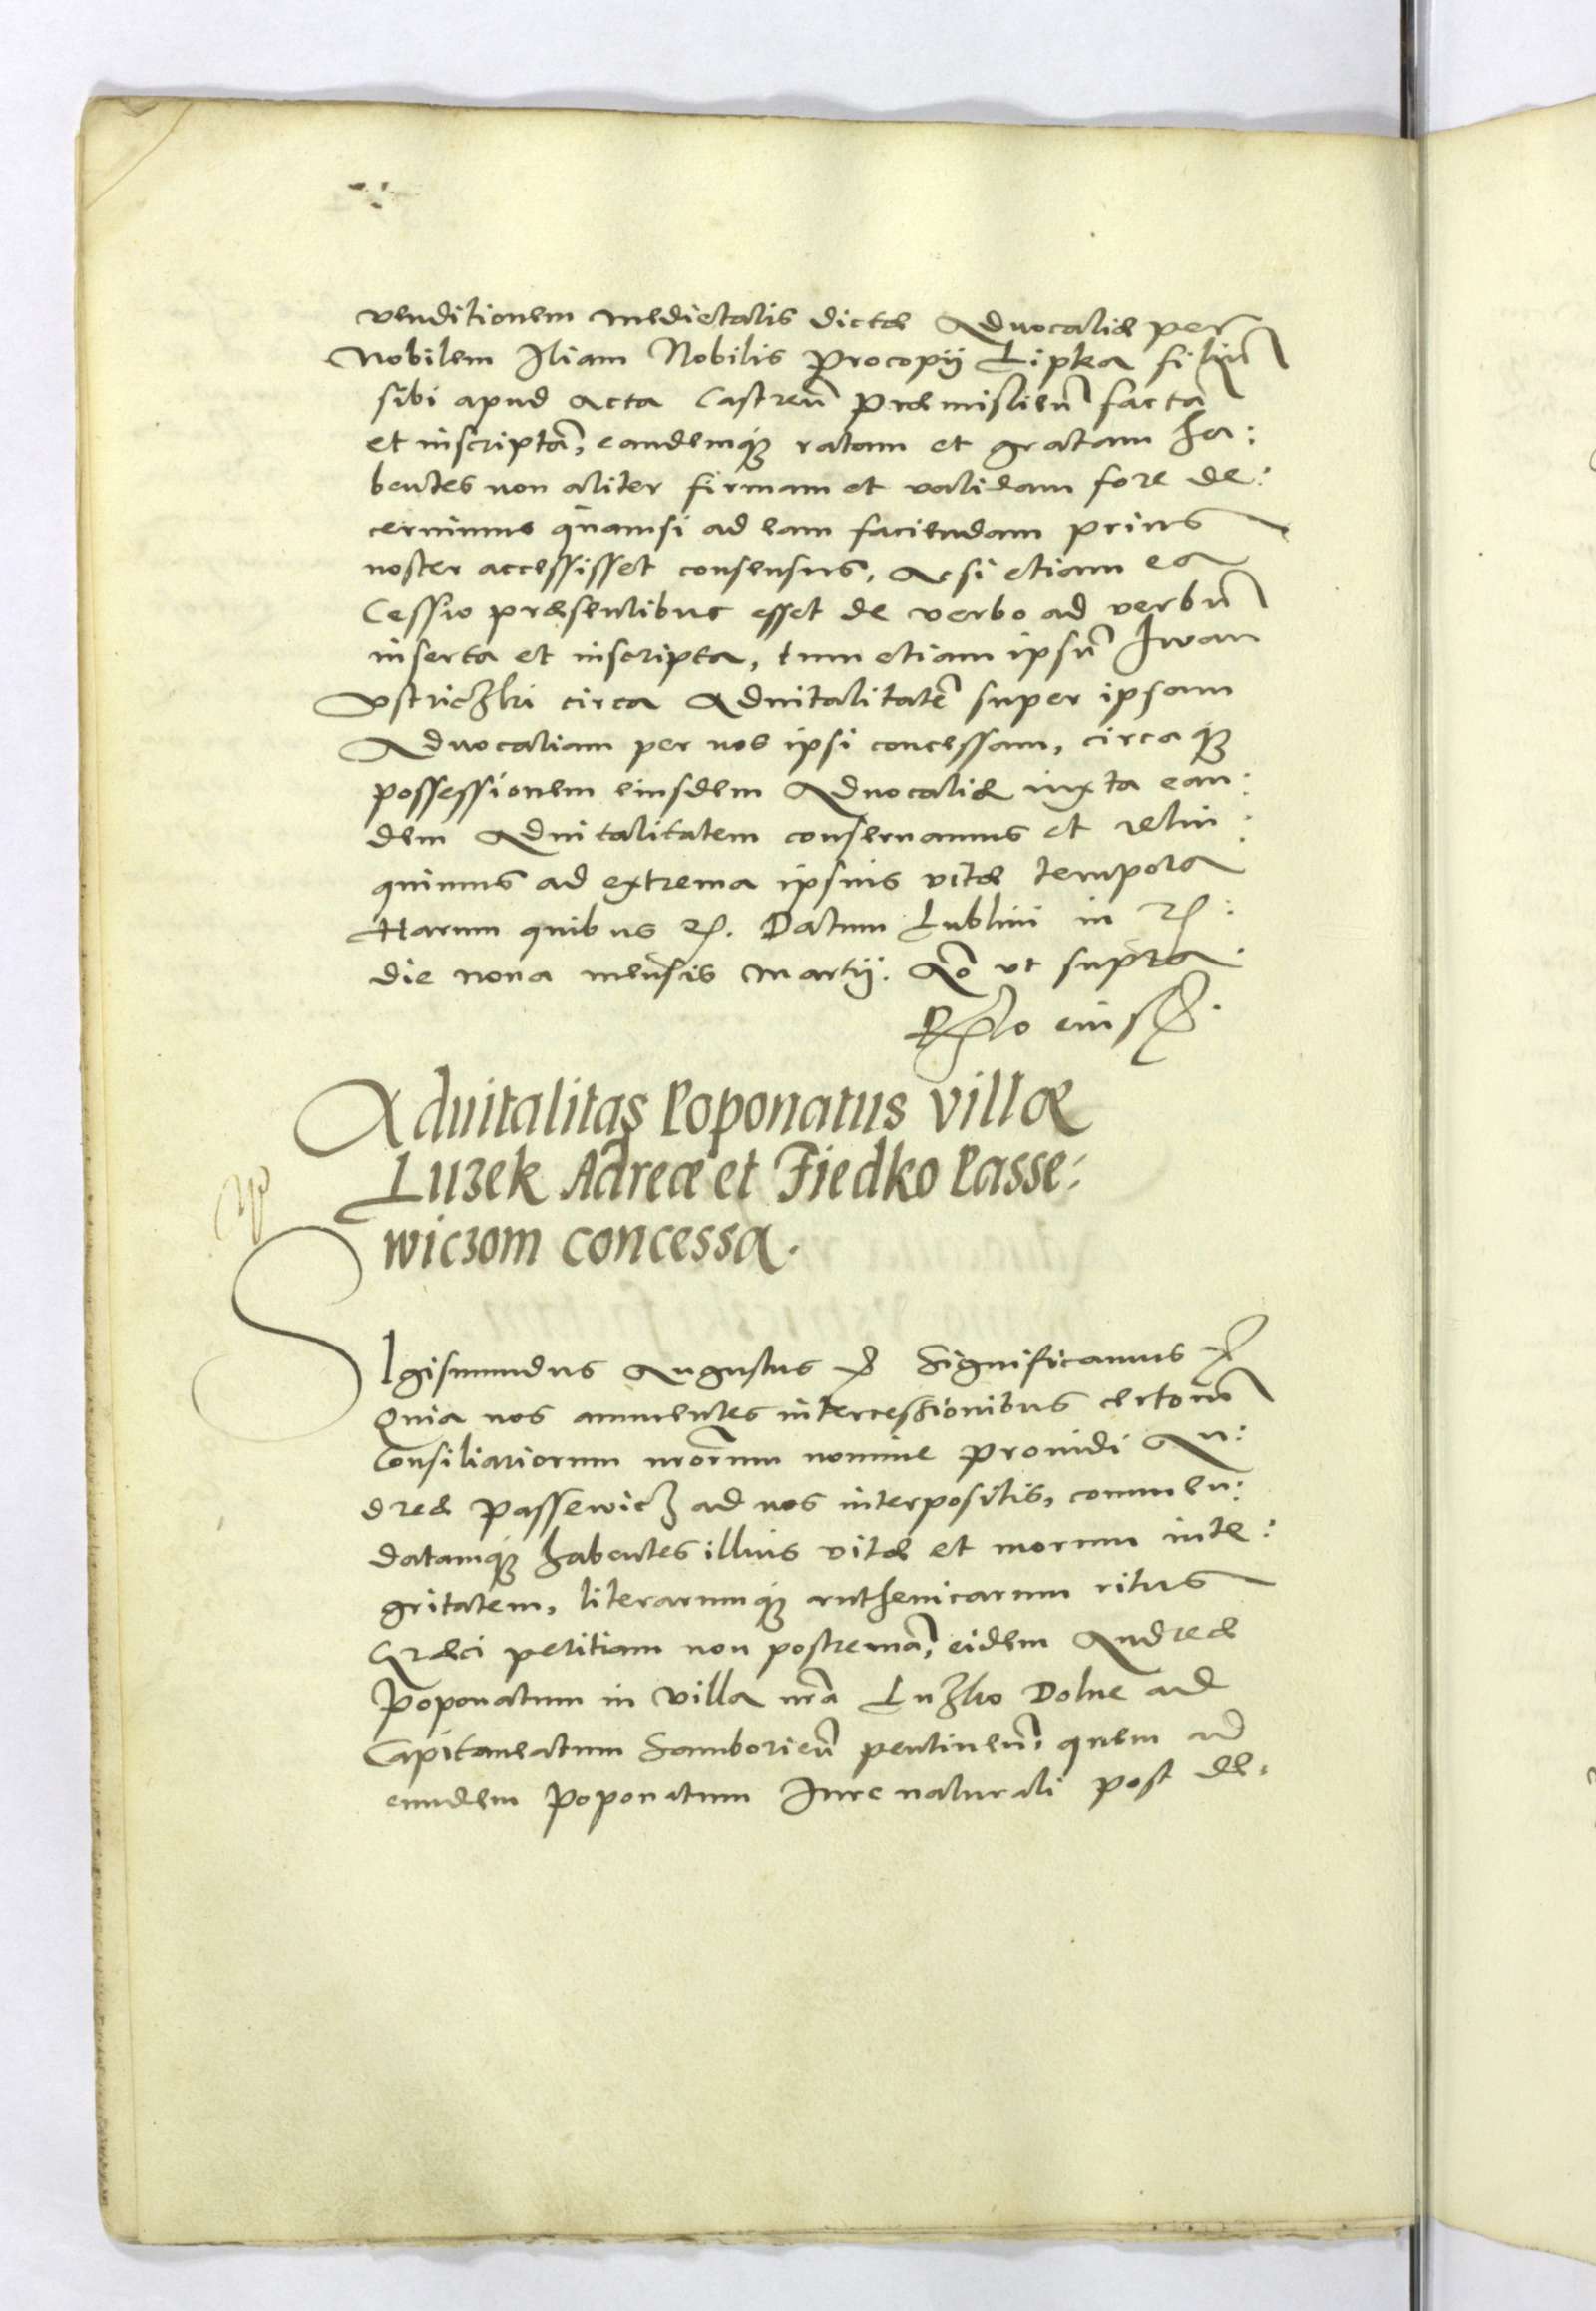 venditionem medietatis dictæ Advocatiæ per
Nobilem Iliam Nobilis Procopii Lipka filiũ
sibi apud Acta Castreñ Præmislieñ factã
et inscriptã, eandemq3 ratam et gratam ha:
bentes non aliter firmam et validam fore de:
cernimus quamsi ad eam faciendam prius
noster accessisset consensus, Acsi etiam ea
Cessio præsentibus esset de verbo ad verbũ
inserta et inscripta, tum etiam ipsũ Iwan
Vstriczki circa Advitalitatẽ super ipsam
Advocatiam per nos ipsi concessam, circa q3
possessionem eiusdem Advocatiæ iuxta ean:
dem Advitalitatem conservamus et relin:
quimus ad extrema ipsius vitæ tempora
Harum quibus etc. Datum Lublini in etc:
die nona mensis Martii. Ao ut supra.
Rlo eiusd.
Advitalitas Poponatus villæ
Luzek Adreæ et Fiedko Passe:
wiczom concessa.
SIgismundus Augustus etc Significamus etc
Quia nos annuentes intercessionibus certorũ
Consiliariorum nrorum nomine providi An:
dreæ Passewicz ad nos interpositis, commen:
datamq3 habentes illius vitæ et morum inte:
gritatem, literarumq3 ruthenicarum ritus
Græci peritiam non postremã, eidem Andreæ
Poponatum in villa nrã Luzko Dolne ad
Capitaneatum Samborieñ pertineñ, quem ad
eundem Poponatum Iure naturali post de: